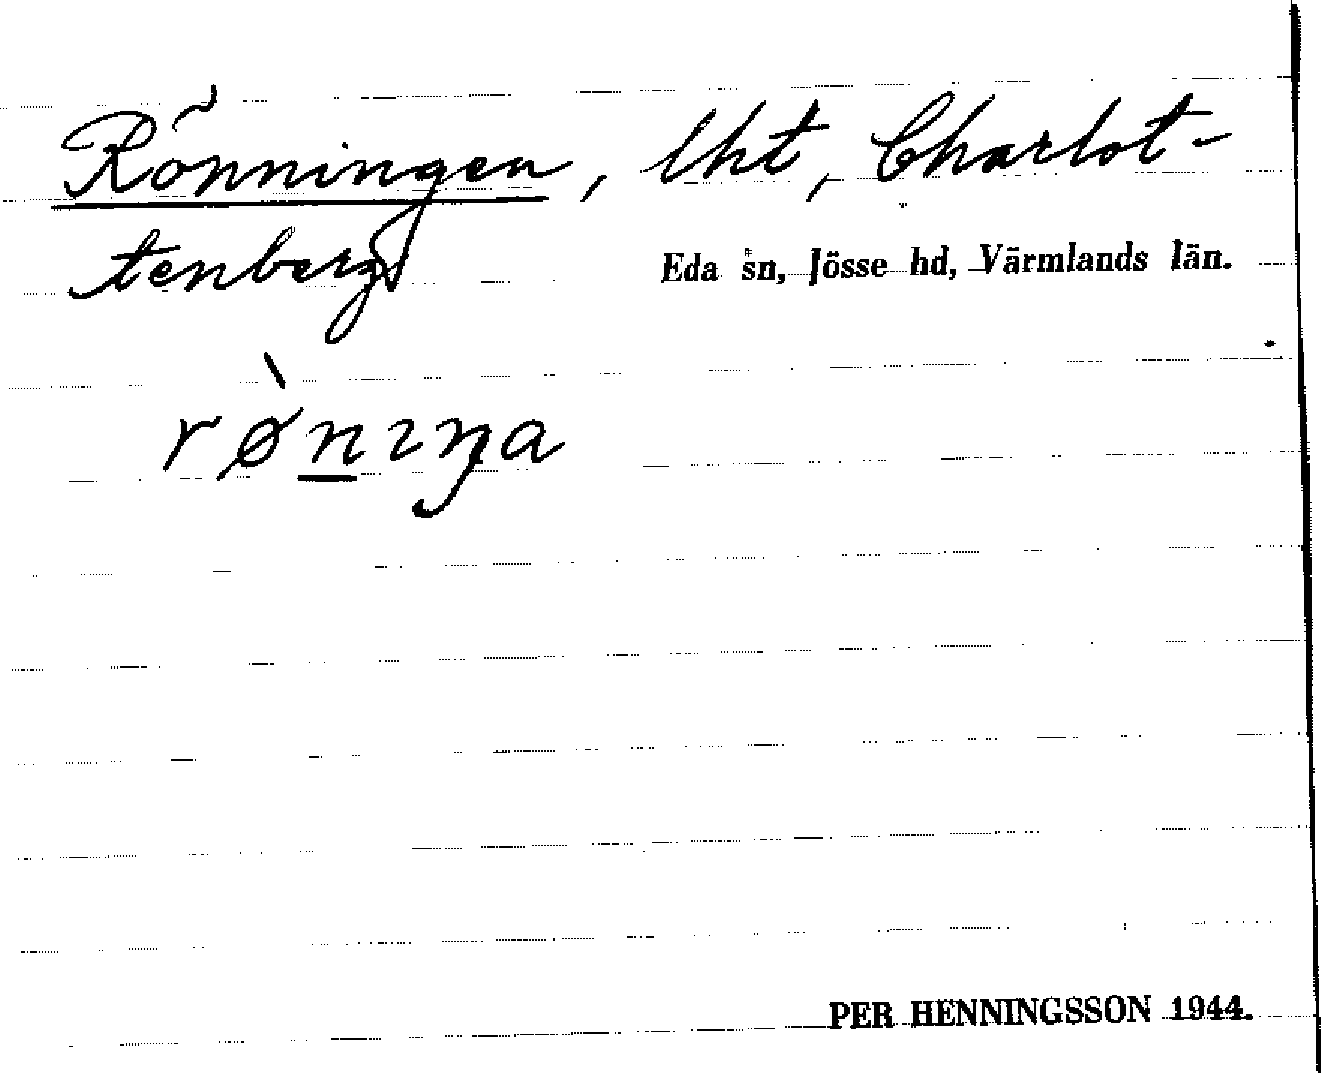 Rönningen, lht, Charlot-
tenberg
Eda sn, Jösse hd, Värmlands län.
rø̀n̲ıŋa
PER HENNINGSSON 1944.